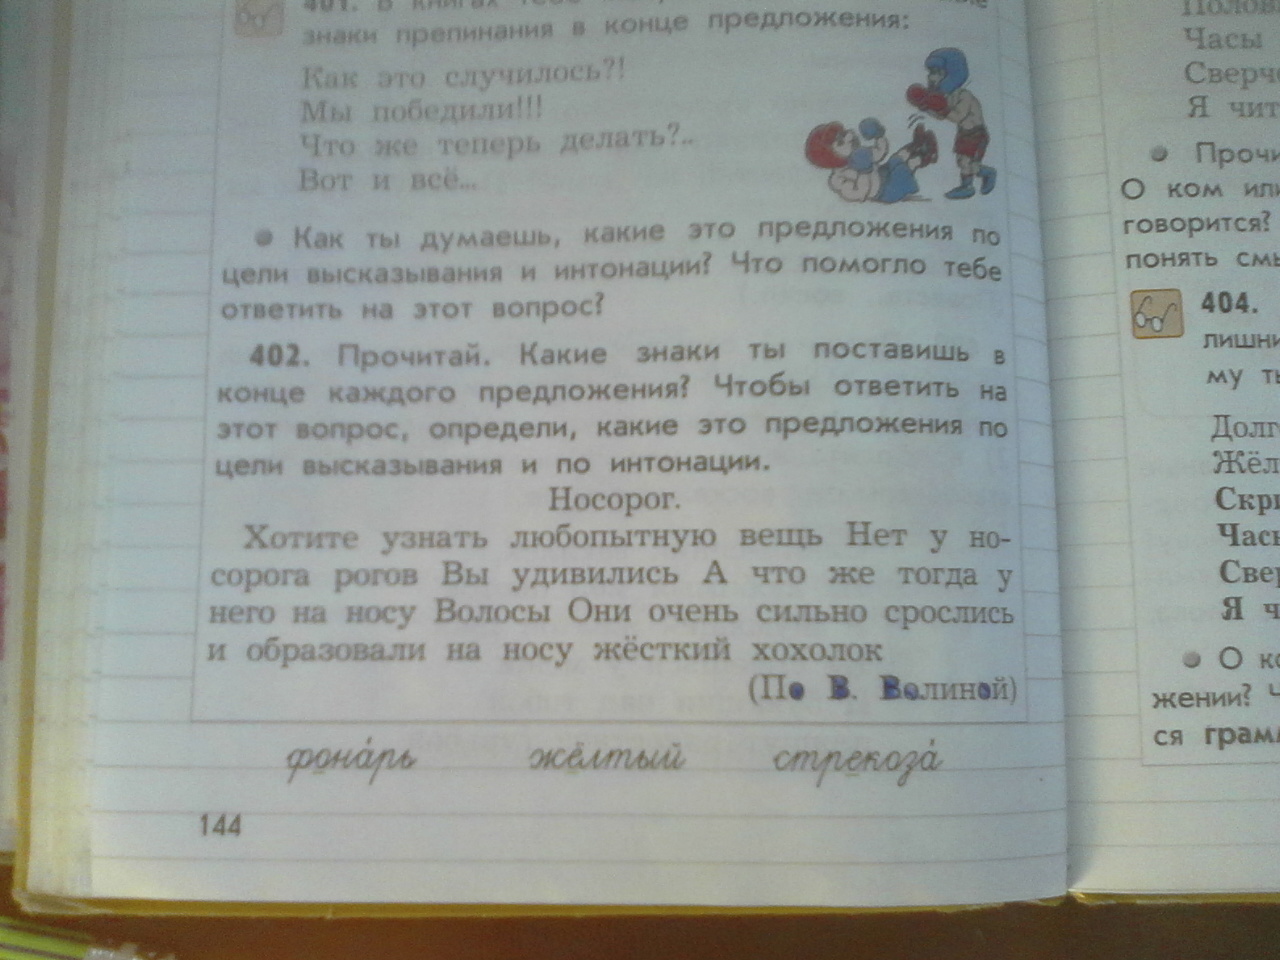 401. В книгах
знаки препинания в конце предложения:
Как это случилось?!
Мы победили!!!
Что же теперь делать?..
Вот и всё...
Как ты думаешь, какие это предложения по
цели высказывания и интонации? Что помогло тебе
ответить на этот вопрос?
402. Прочитай. Какие знаки ты поставишь в
конце каждого предложения? Чтобы ответить на
этот вопрос, определи, какие это предложения по
цели высказывания и по интонации.
Носорог.
Хотите узнать любопытную вещь Нет у но-
сорога рогов Вы удивились А что же тогда у
него на носу Волосы Они очень сильно срослись
и образовали на носу жёсткий хохолок
(По В. Волиной)
фона́рь жёлтый стрекоза́
144
Часы
Сверч
Я чит
Прочи
О ком или
говорится?
понять смы
404.
лишни
му ты
Долг
Жёл
Скри
Час
Свер
Я ч
О ко
жении? Ч
ся грам